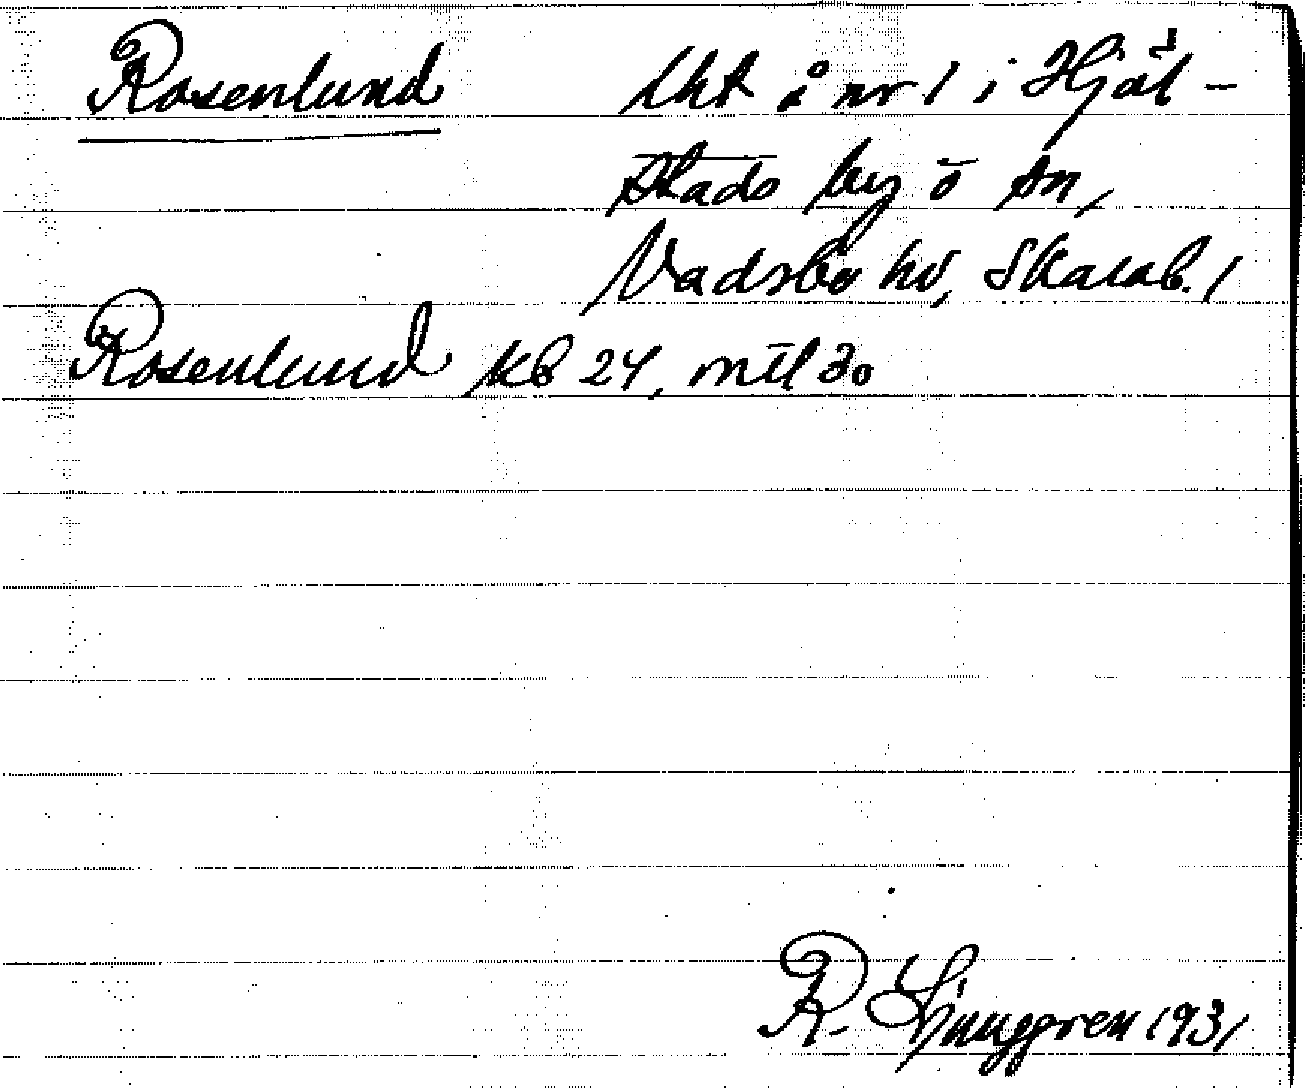 Rosenlund lht å nr 1 i Hjäl-
stads by o sn,
Vadsbo hd, Skarab. l
Rosenlund kb 24, mtl 30
R. Ljunggren 1931